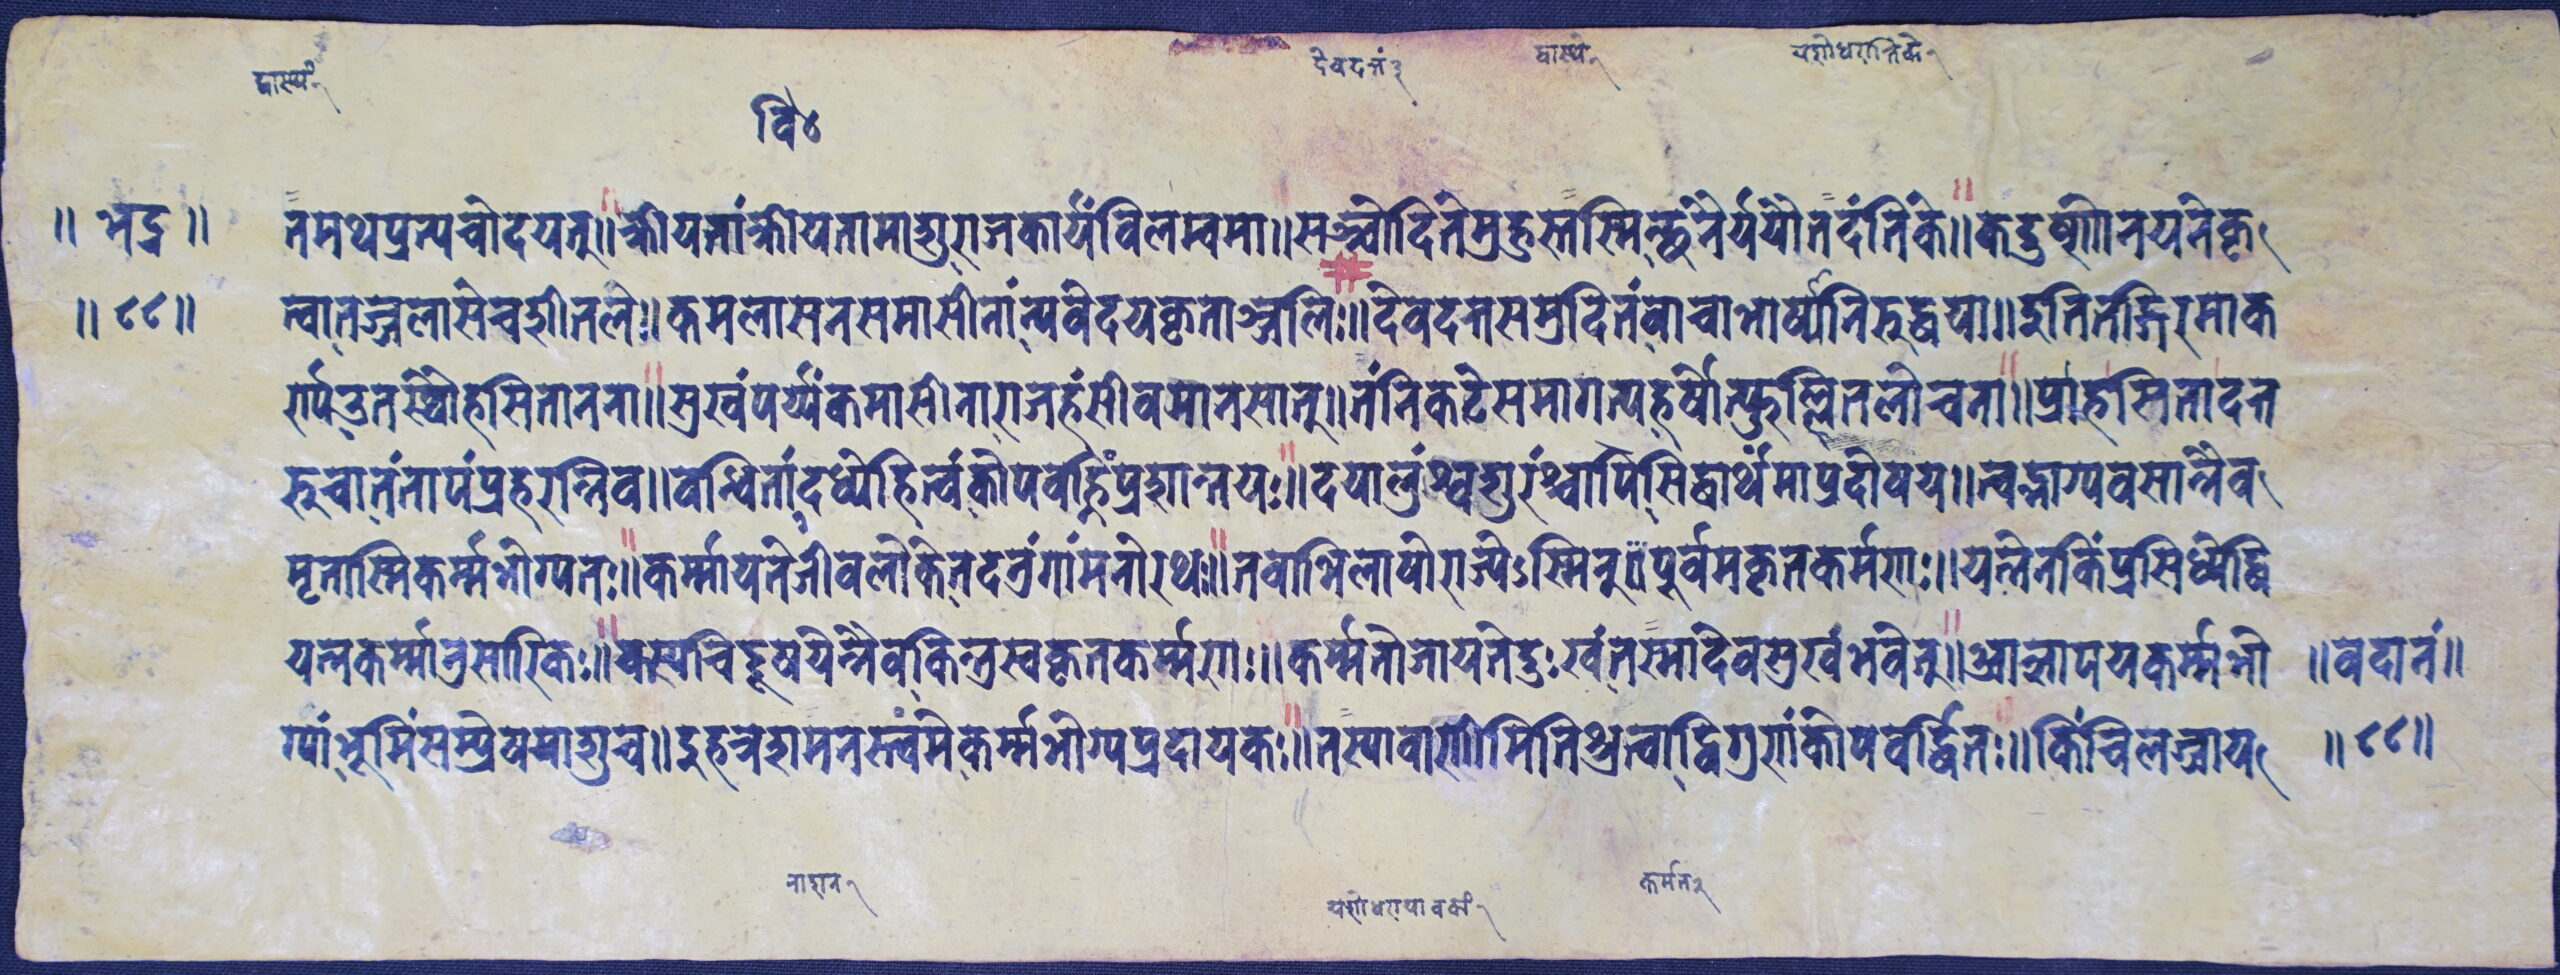 दास्यं१
देवदत्तं३
दास्ये१
यशोधरान्तिके१
वि४
॥ भद्र ॥ तमथप्रत्यचोदयत्॥क्रीयतांक्रीयतामाशुराजकार्यंविलम्बमा॥सञ्चोदितेमुहुस्तस्मिन् ययौतदंतिके॥कदुष्णनयनेकृ
॥ ८८ ॥ त्वातज्जलासेचशीतले॥कमलासनसमासीनांन्यवेदयकृताञ्जलिः॥देवदत्तसमुदितंवाचाभार्य्यनिरुद्धया॥इतितद्गिरमाक
र्ण्य हसितानना॥सुखंपर्य्यंकमासीनाराजहंसीवमानसात्॥तंनिकटेसमागत्यहर्षोत्फुल्लितलोचना॥प्राहसितादन्त
रुचातंतापंप्रहरन्तिव॥ कोपवह्निंप्रशान्तयः॥दयालुंश्वशुरंश्चापिसिद्धार्थंमाप्रदोषय॥त्वद्भाग्यवसान्नैव
मृतास्मिकर्म्मभोग्यतः॥कर्म्मायतेजीवलोके मनोरथः॥तवाभिलाषोराज्येऽस्मिन्पूर्वमकृतकर्मणाः॥यत्नेनकिंप्रसिध्येद्धि
यत्नकर्म्मानुसारिकः॥कस्यचिद्दूषयेन्नैवकिन्तुस्वकृतकर्म्मणाः॥कर्म्मतोजायतेदुःखंतस्मादेवसुखंभवेत्॥आज्ञापयकर्म्मभो ॥वदानं॥
ग्यांभूमिंसम्प्रेषयाशुच॥ कर्म्मभोग्यप्रदायकः॥तस्यावाणीमितिश्रुत्वाद्विगुणंकोपवर्द्धितः॥किंचिलज्जाय ॥ ८८ ॥
नाशन१
यशोधरायावक्यं१
कर्मत३